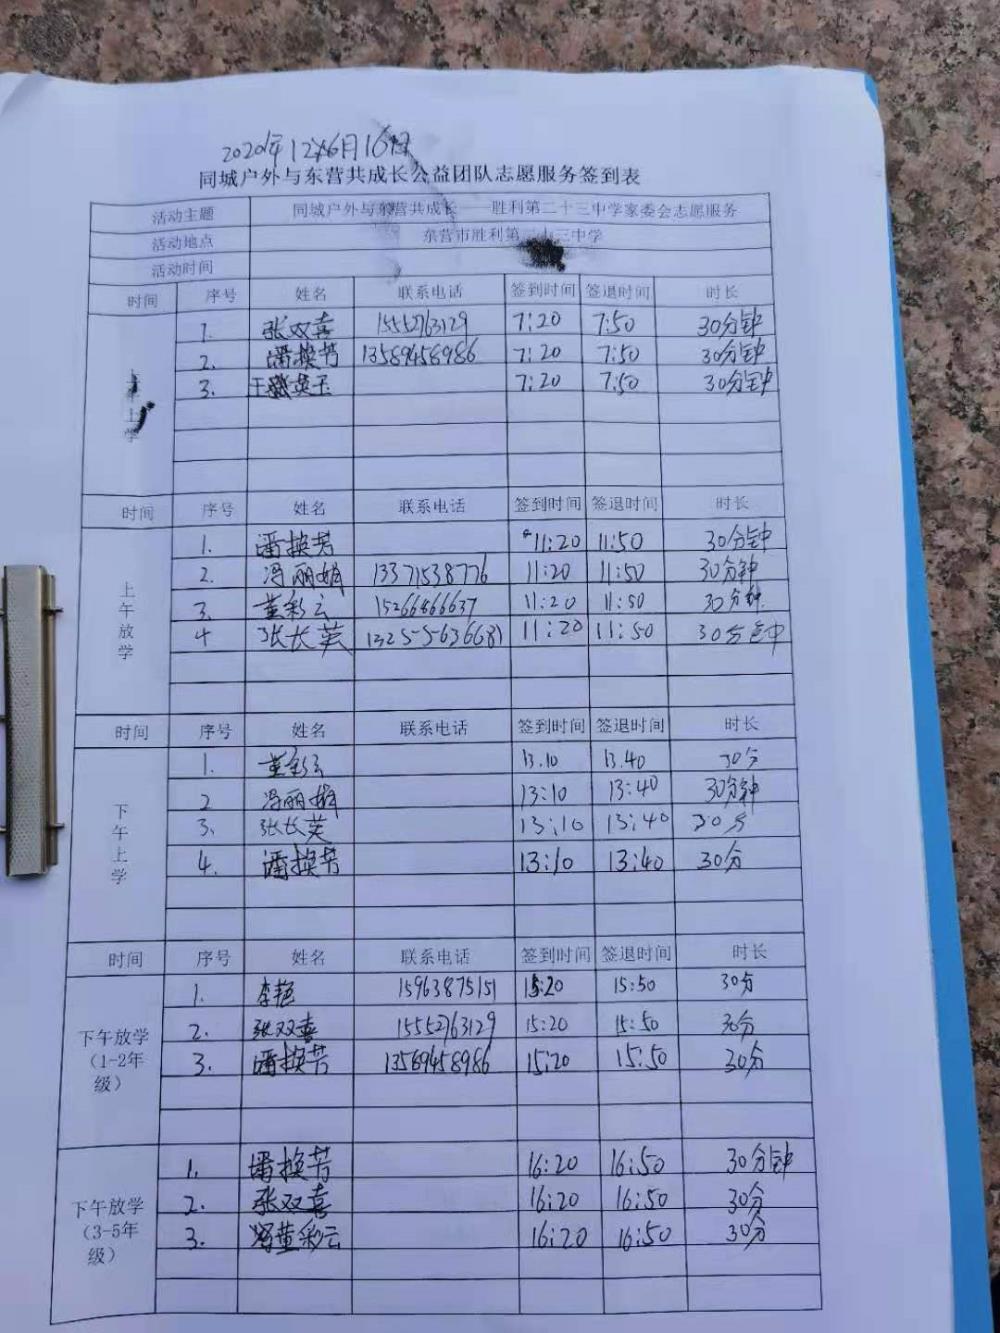 同城户外与东营共成长公益团队志愿服务签到表
活动主题 同城户外与东营共成长——胜利第二十三中学家委会志愿服务
活动地点 东营市胜利第二十三中学
活动时间
时间 序号 姓名 联系电话 签到时间 签退时间 时长
上学
1. 张双喜 15552763129 7:20 7:50 30分钟
2. 潘换芳 13589458986 7:20 7:50 30分钟
3. 7:20 7:50 30分钟
时间 序号 姓名 联系电话 签到时间 签退时间 时长
上午放学
1. 潘换芳 11:20 11:50 30分钟
2. 冯丽娟 13371538776 11:20 11:50 30分钟
3. 董彩云 15266866637 11:20 11:50 30分钟.
4 张长英 13255636681 11:20 11:50 30分钟
时间 序号 姓名 联系电话 签到时间 签退时间 时长
下午上学
1. 董彩云 13.10 13.40 30分
2 冯丽娟 13:10 13:40 30分钟
3. 张长英 13:10 13:40 30分
4. 潘换芳 13:10 13:40 30分
时间 序号 姓名 联系电话 签到时间 签退时间 时长
下午放学（1-2年级）
1. 李艳 15963875151 15:20 15:50 30分
2. 张双喜 15552763129 15:20 15:50 30分
3. 潘换芳 13589458986 15:20 15:50 30分
下午放学（3-5年级）
1. 潘换芳 16:20 16:50 30分钟
2. 张双喜 16:20 16:50 30分
3. 董彩云 16:20 16:50 30分